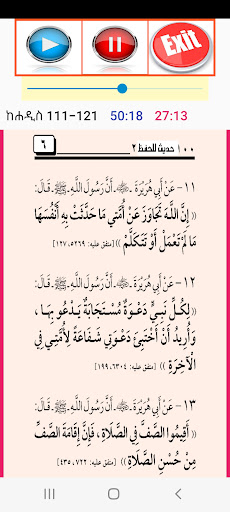 Exit
ከሐዲስ 111-121 50:18 27:13
١٠٠ حديث للحفظ ٢ ٦
١١- عَنْ أَبِي هُرَيْرَةَ ـ ﷺ ـ أَنَّ رَسُولَ اللَّهِ ـ ﷺ ـ قَالَ:
((إِنَّ اللَّهَ تَجَاوَزَ عَنْ أُمَّتِي مَا حَدَّثَتْ بِهِ أَنْفُسَهَا
مَا لَمْ تَعْمَلْ أَوْ تَتَكَلَّمْ)) [متفق عليه: ٥٢٦٩، ١٢٧].
١٢- عَنْ أَبِي هُرَيْرَةَ ـ ﷺ ـ أَنَّ رَسُولَ اللَّهِ ـ ﷺ ـ قَالَ:
((لِكُلِّ نَبِيٍّ دَعْوَةٌ مُسْتَجَابَةٌ يَدْعُو بِهَا،
وَأُرِيدُ أَنْ أَخْتَبِئَ دَعْوَتِي شَفَاعَةً لِأُمَّتِي فِي
الْآخِرَةِ)) [متفق عليه: ٦٣٠٤، ١٩٩].
١٣- عَنْ أَبِي هُرَيْرَةَ ـ ﷺ ـ أَنَّ رَسُولَ اللَّهِ ـ ﷺ ـ قَالَ:
((أَقِيمُوا الصَّفَّ فِي الصَّلَاةِ، فَإِنَّ إِقَامَةَ الصَّفِّ
مِنْ حُسْنِ الصَّلَاةِ)) [متفق عليه: ٧٢٢، ٤٣٥].